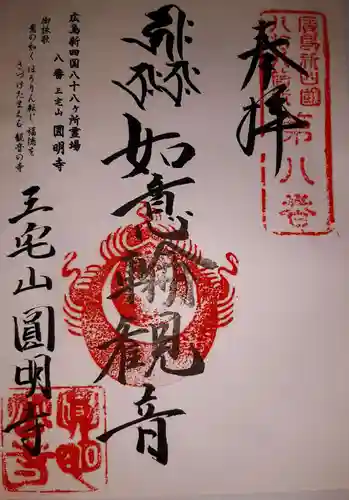 奉拝
廣島新四國
八十八ヶ所
第八番
如意輪観音
広島新四国八十八ヶ所霊場
八番 三宅山 圓明寺
御詠歌
意の如くほうりん転じ福徳を
さづけたまえる観音の寺
三宅山圓明寺